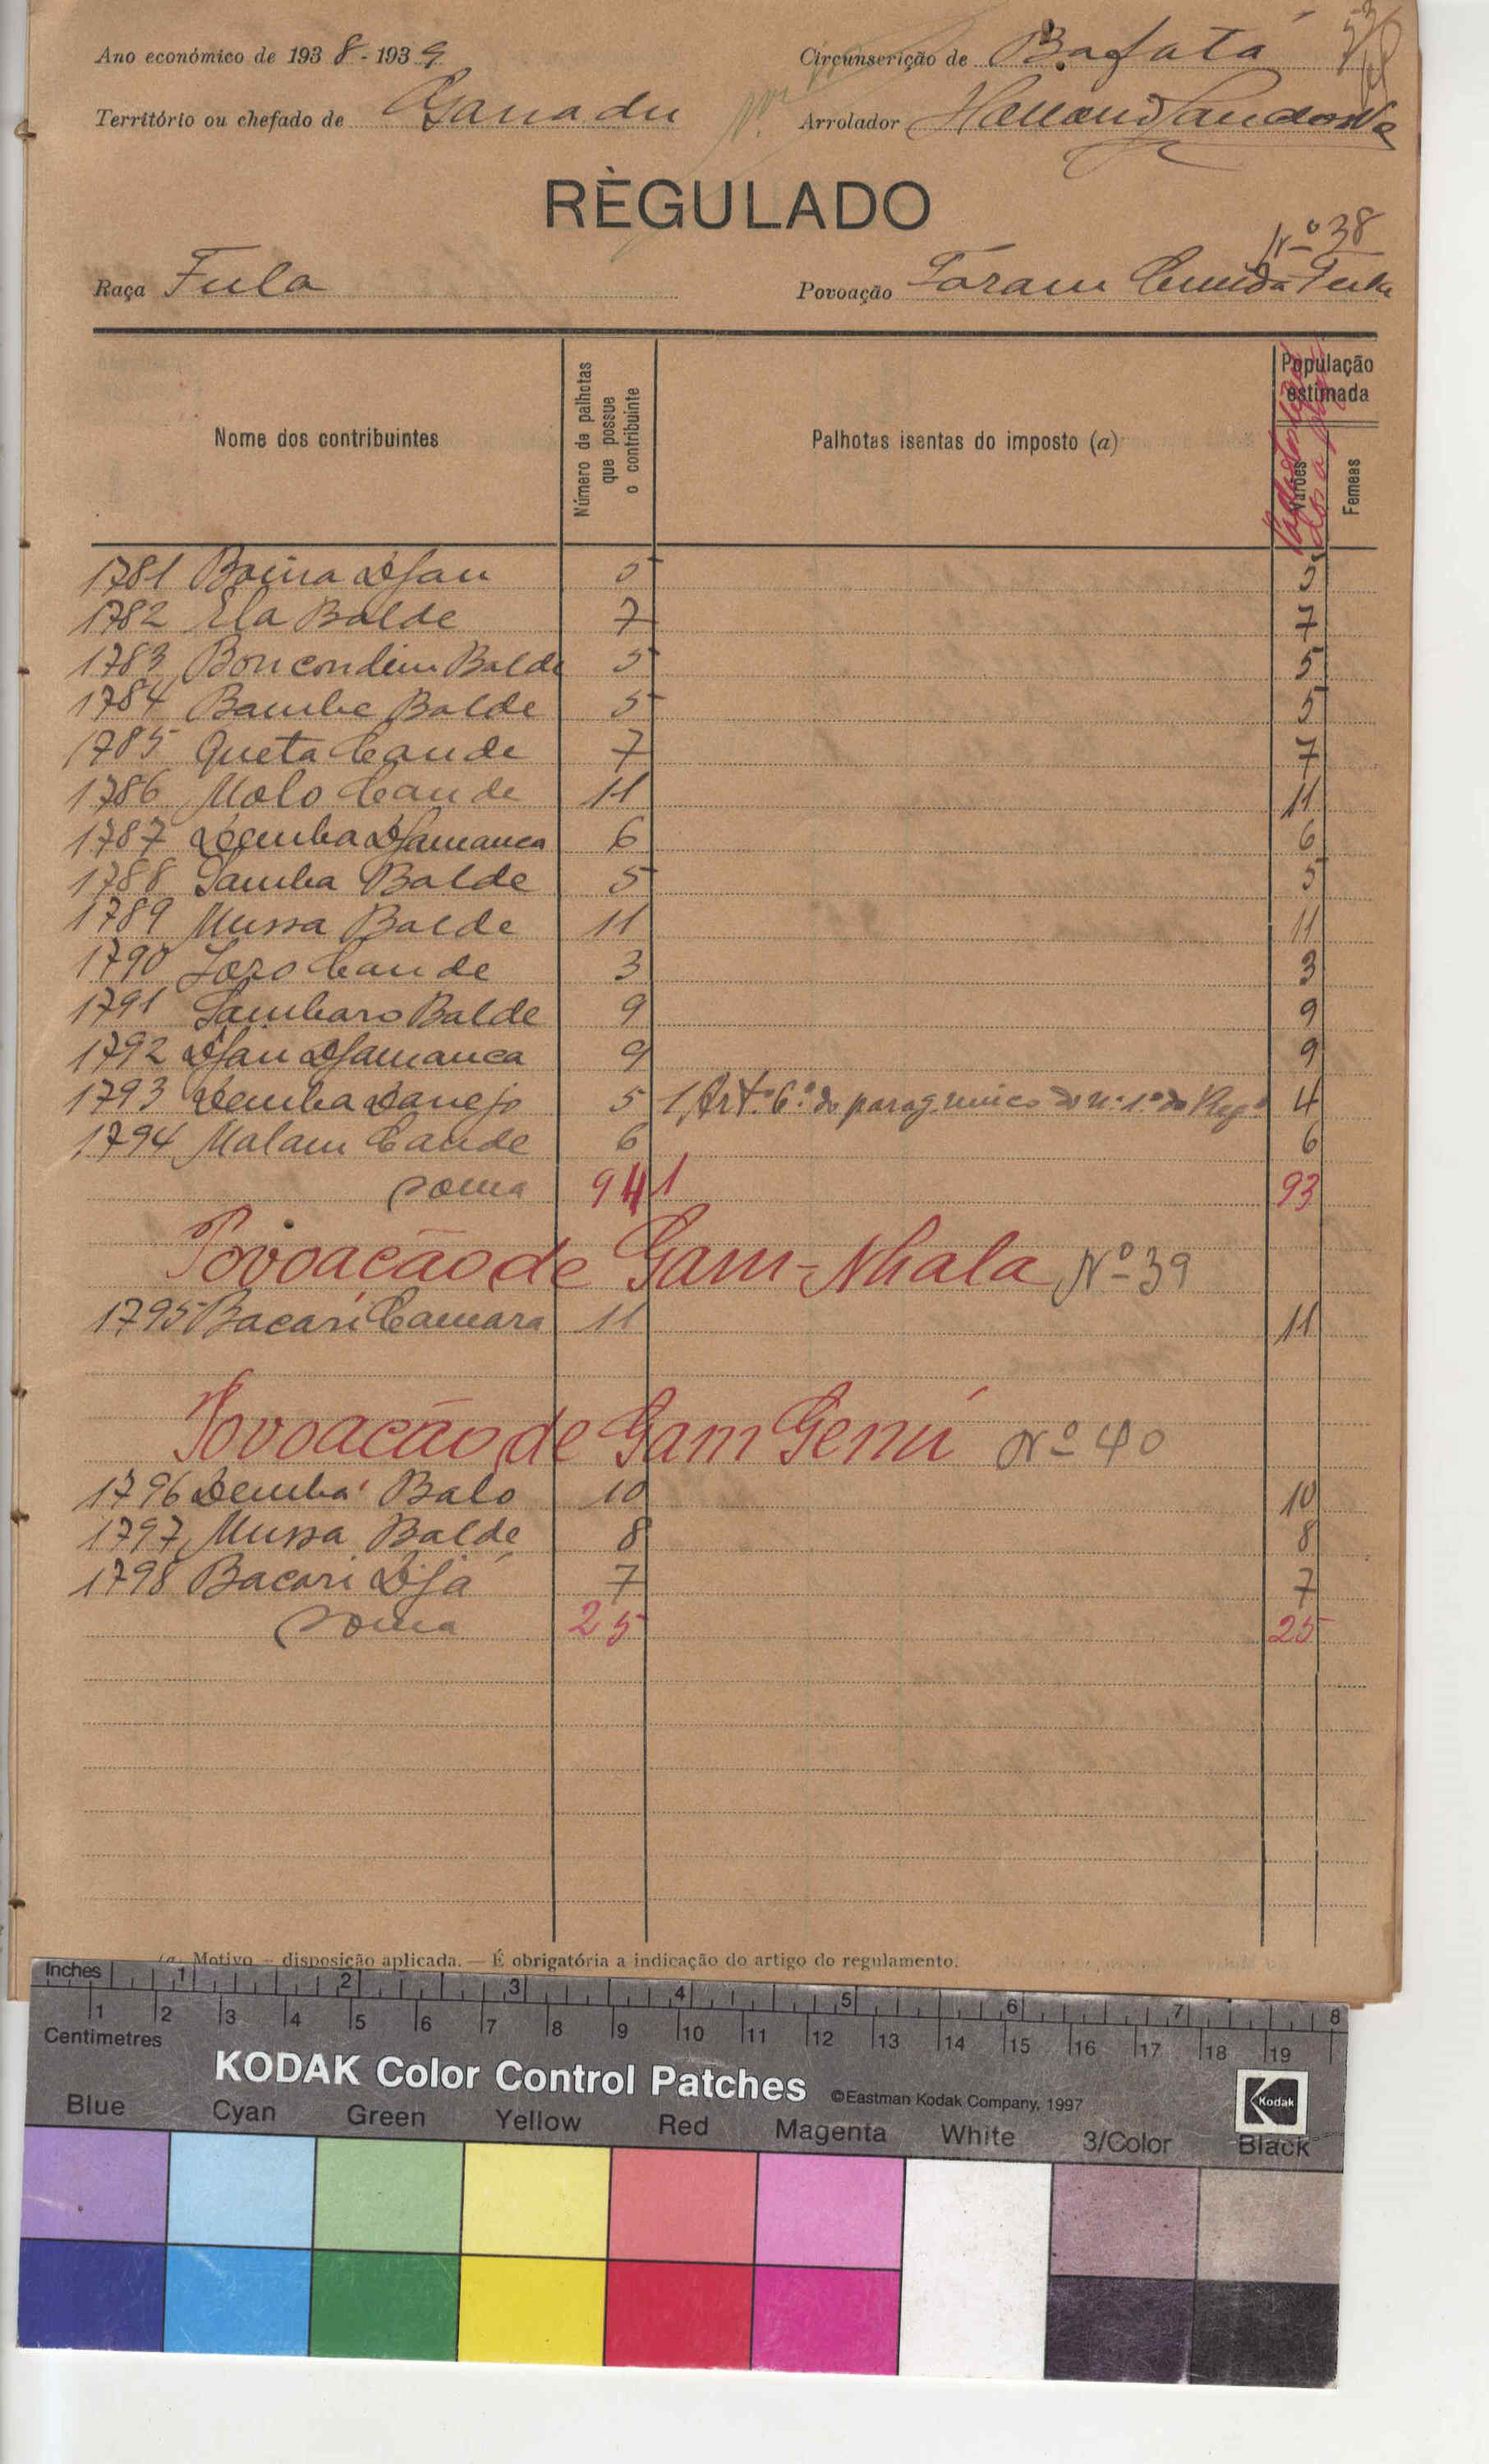 Ano económico de 1938-1939
Circunscrição de Bafatá
Território ou chefado de Ganadu
Arrolador
RÈGULADO
Nº 38
Raça Fula
Povoação
Nome dos contribuintes
Número de palhotas que possue o contribuinte
Palhotas isentas do imposto (a)
População estimada
Varões
Femeas
1781 Djau 5 5
1782 Ela Balde 7 7
1783 Boncondim Balde 5 5
1784 Bambe Balde 5 5
1785 Queta Cande 7 7
1786 Molo Cande 11 11
1787 Demba Djamanca 6 6
1788 Samba Balde 5 5
1789 Mussa Balde 11 11
1790 Cande 3 3
1791 Sambaro Balde 9 9
1792 Djau Djamanca 9 9
1793 Demba Danejo 5 1 Artº 6º do parag. unico do nº 1º do Regº 4
1794 Malam Cande 6 6
soma 94 1 93
Povoação de Gam-Nhala Nº 39
1795 Bacari Camara 11 11
Povoação de Gam Genú Nº 40
1796 Demba Balo 10 10
1797 Mussa Balde 8 8
1798 Bacari Djá 7 7
soma 25 25
(a) Motivo — disposição aplicada. — É obrigatória a indicação do artigo do regulamento.
Inches 1 2 3 4 5 6 7 8
1 2 3 4 5 6 7 8 9 10 11 12 13 14 15 16 17 18 19
Centimetres
KODAK Color Control Patches ©Eastman Kodak Company, 1997 Kodak
Blue Cyan Green Yellow Red Magenta White 3/Color Black